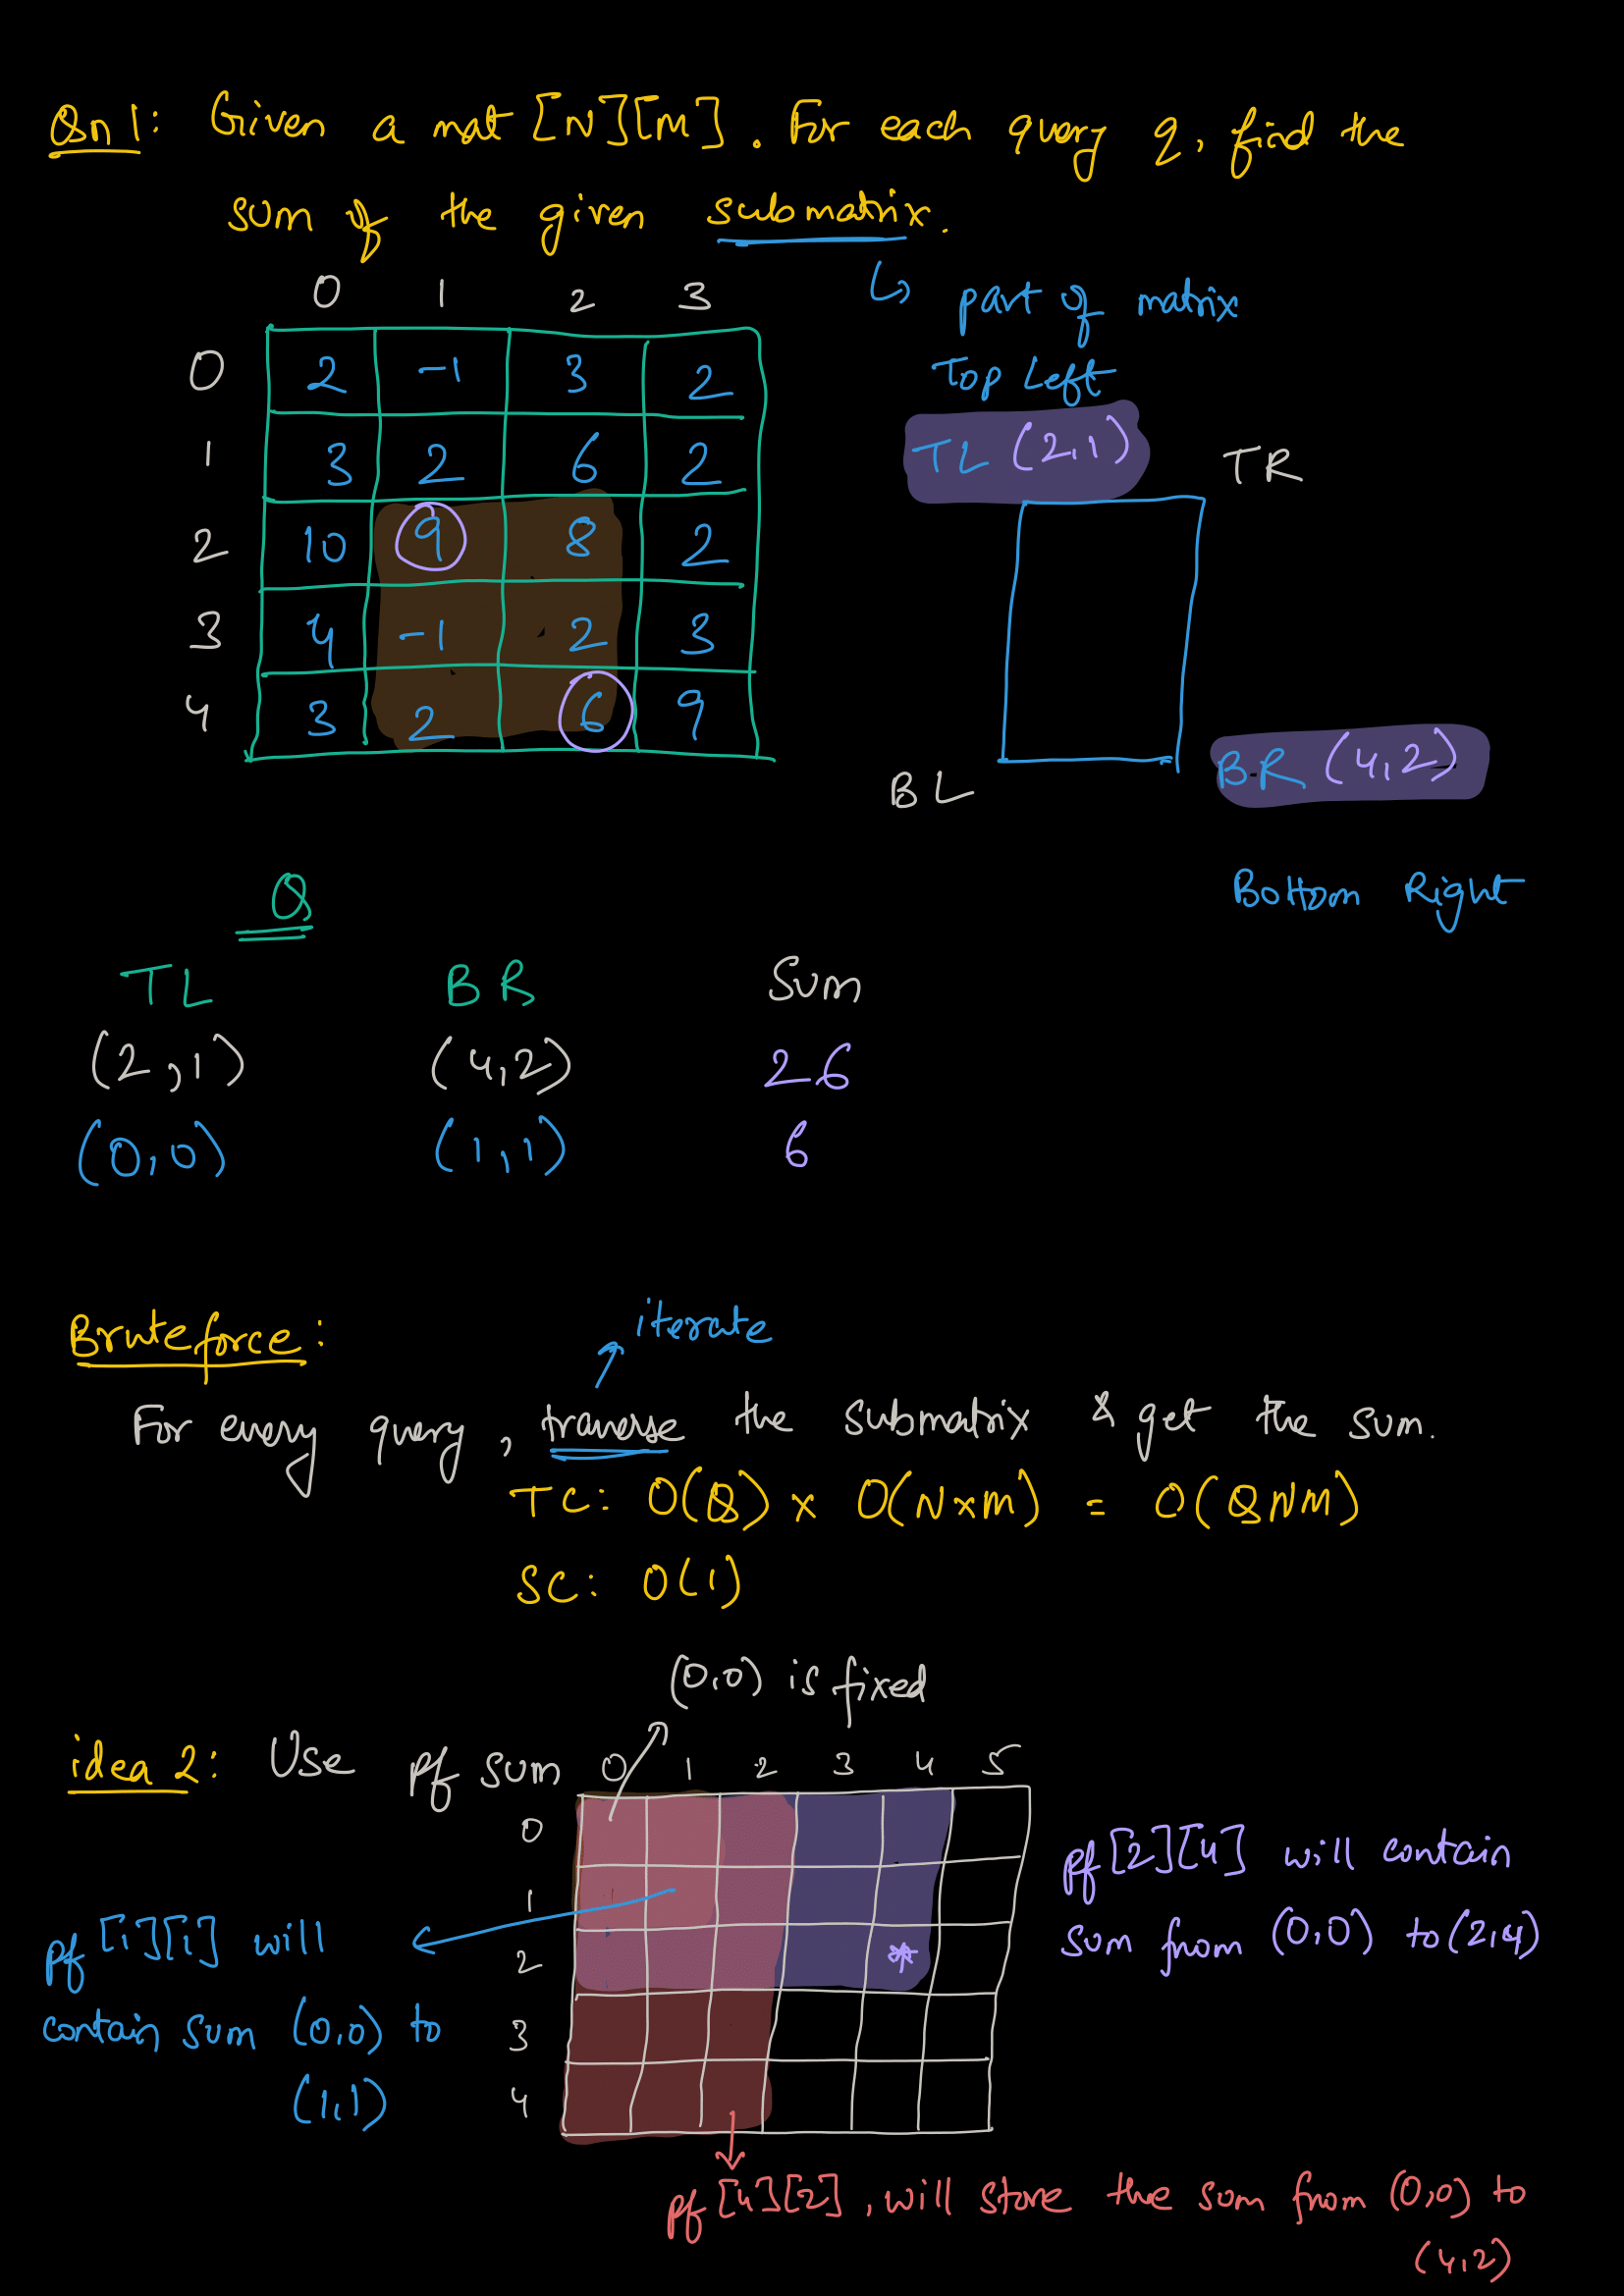 Qn 1: Given a mat [N][M]. For each query q, find the
sum of the given submatrix.
↳ part of matrix
0 1 2 3
0 2 -1 3 2
1 3 2 6 2
2 10 9 8 2
3 4 -1 2 3
4 3 2 6 9
Top Left
TL (2,1) TR
BL BR (4,2)
Bottom Right
Q
TL BR Sum
(2,1) (4,2) 26
(0,0) (1,1) 6
Bruteforce:
iterate
For every query, traverse the submatrix & get the sum.
TC: O(Q) x O(Nxm) = O(QNM)
SC: O(1)
(0,0) is fixed
idea 2: Use pf sum
0 1 2 3 4 5
0
1
2 *
3
4
pf [1][1] will
contain sum (0,0) to
(1,1)
pf [2][4] will contain
sum from (0,0) to (2,4)
pf [4][2], will store the sum from (0,0) to
(4,2)